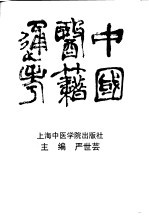 中國
醫籍
通考
上海中医学院出版社
主编 严世芸